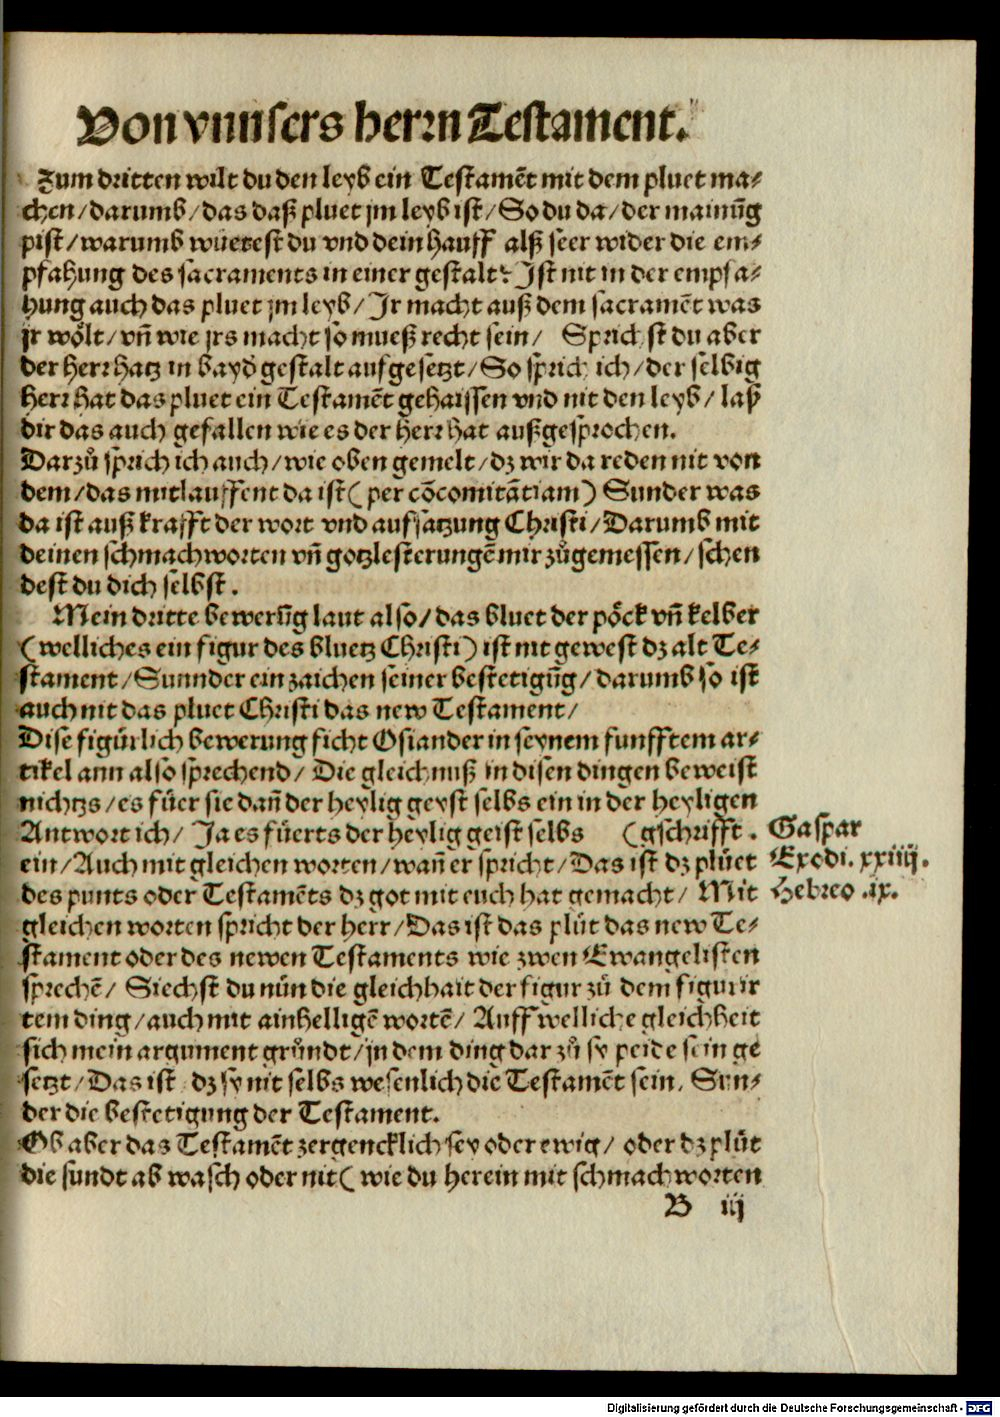 Von vnnsers herrn Testament.
Zum dritten wilt du den leyb ein Testamēt mit dem pluet ma⸗
chen/darumb/das daß pluet jm leyb ist/So du da/der mainūg
pist/warumb wüetest du vnd dein hauff alß seer wider die em⸗
pfahung des sacraments in einer gestalt? Ist nit in der empfa⸗
hung auch das pluet jm leyb/Jr macht auß dem sacramēt was
jr wölt/vñ wie jrs macht so mueß recht sein/ Sprichst du aber
der herr hatz in bayd̄ gestalt aufgesetzt/So sprich ich/der selbig
herr hat das pluet ein Testamēt gehaissen vnd nit den leyb/laß
dir das auch gefallen wie es der herr hat außgesprochen.
Darzů sprich ich auch/wie oben gemelt/dz wir da reden nit von
dem/das mitlauffent da ist(per cōcomitātiam) Sunder was
da ist auß krafft der wort vnd aufsatzung Christi/Darumb mit
deinen schmachworten vñ gotzlesterungē mir zůgemessen/schen
dest du dich selbst.
Mein dritte bewerūg laut also/das bluet der pöck vñ kelber
(welliches ein figur des bluetz Christi)ist nit gewest dz alt Te⸗
stament/Sunnder ein zaichen seiner bestetigūg/darumb so ist
auch nit das pluet Christi das new Testament/
Dise figürlich bewerung ficht Osiander in seynem funfftem ar⸗
tikel ann also sprechend/Die gleichnuß in disen dingen beweist
nichtzs/es füer sie dañ der heylig geyst selbs ein in der heyligen
Antwort ich/ Ja es füerts der heylig geist selbs (gschrifft.
ein/Auch mit gleichen worten/wañ er spricht/Das ist dz plůet
des punts oder Testamēts dz got mit euch hat gemacht/ Mit
gleichen worten spricht der herr/Das ist das plůt das new Te⸗
stament oder des newen Testaments wie zwen Ewangelisten
sprechē/ Siechst du nůn die gleichhait der figur zů dem figurir
tem ding/auch mit ainhelligē wortē/ Auff welliche gleichheit
sich mein argument gründt/in dem ding dar zů sy peide sein ge
setzt/Das ist dz sy nit selbs wesenlich die Testamēt sein, Sun⸗
der die bestetigung der Testament.
Ob aber das Testamēt zergencklich sey oder ewig/ oder dz plůt
die sundt ab wasch oder nit(wie du herein mit schmachworten
B iij
Gaspar
Exodi. xxiiij.
Hebreo .ix.
Digitalisierung gefördert durch die Deutsche Forschungsgemeinschaft - DFG